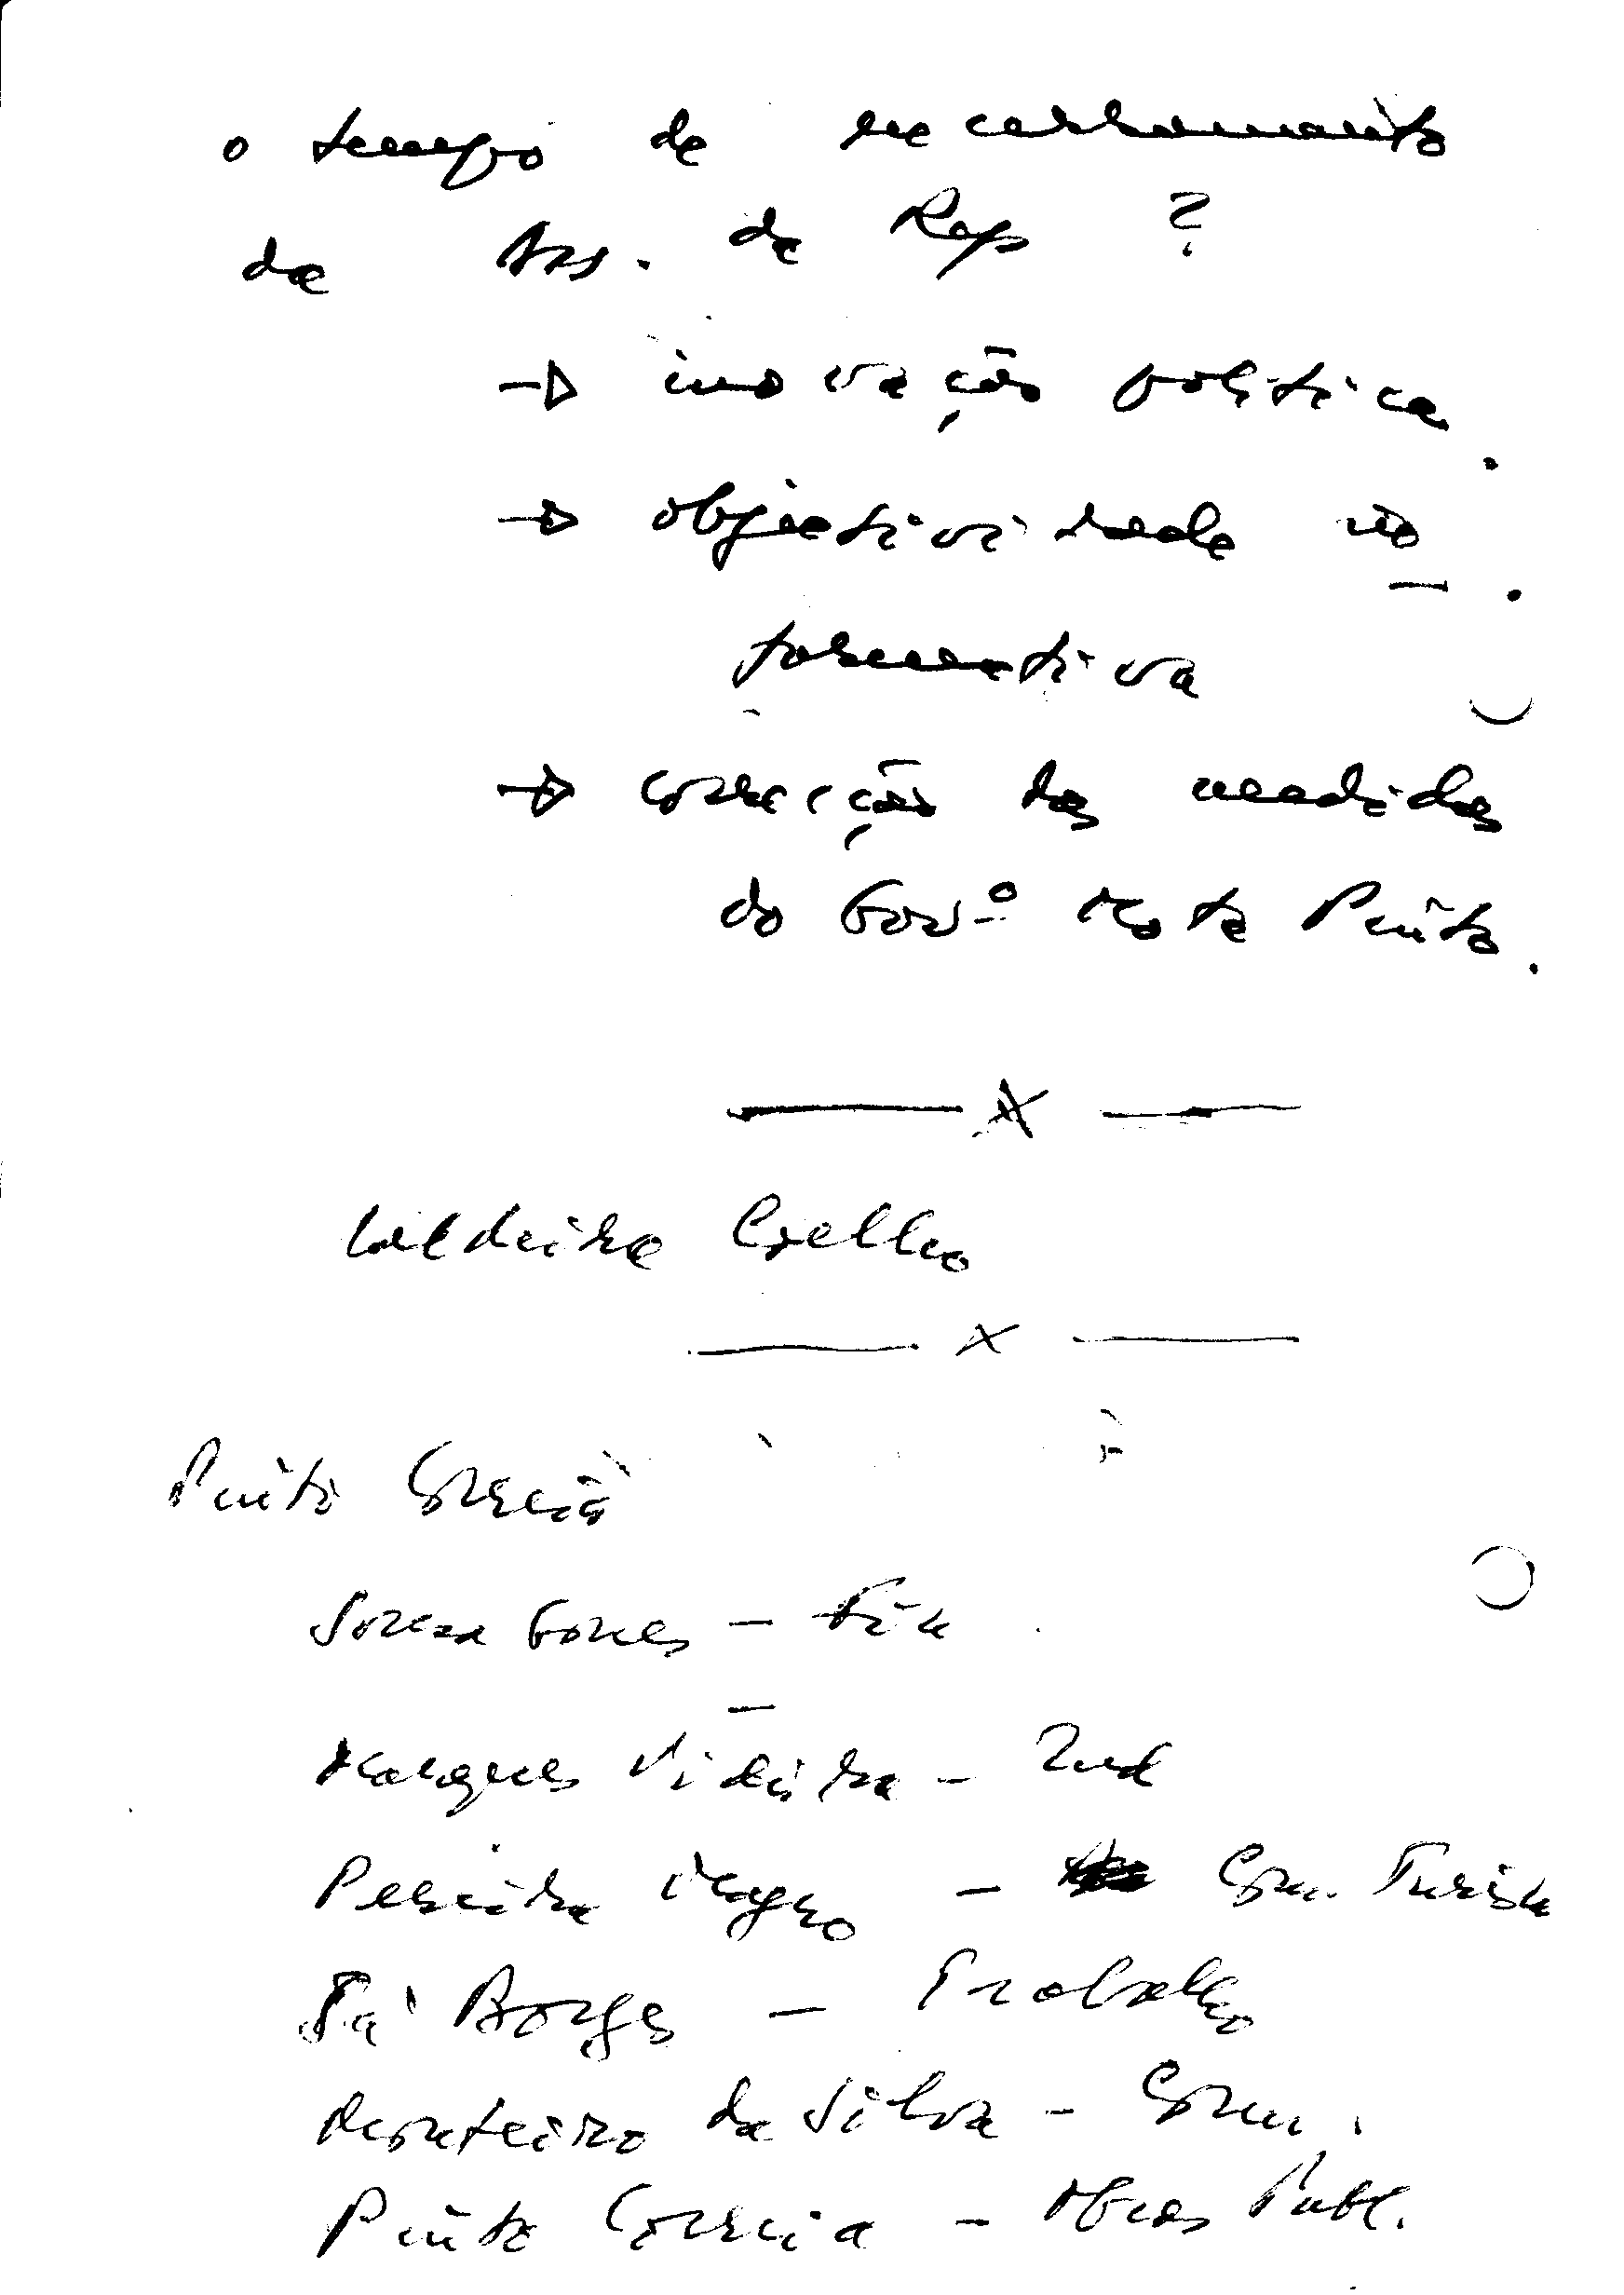 o tempo de encerramento
da Ass. da Rep ?
→ inovação política.
→ objectividade in
formativa
→ correcção das medidas
do Gov.º Mota Pinto.
— x —
Caldeira Coelho
— x —
Pinto Correia
Sousa Gomes - Fin
Marques Videira - Ind
Pereira Magro - Com. Turism
Sá Borges - Trabalho
Monteiro da Silva - Com.
Pinto Correia - Obras Publ.